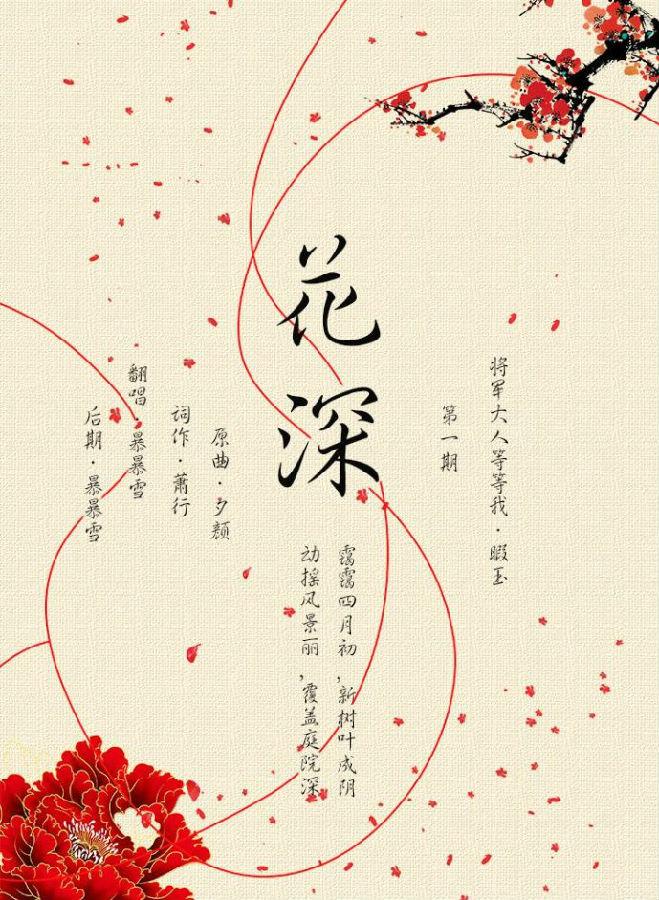 将军大人等等我·暇玉
第一期
花深
霭霭四月初,新树叶成阴
动摇风景丽,覆盖庭院深
原曲·夕颜
词作·萧行
翻唱·暴暴雪
后期·暴暴雪